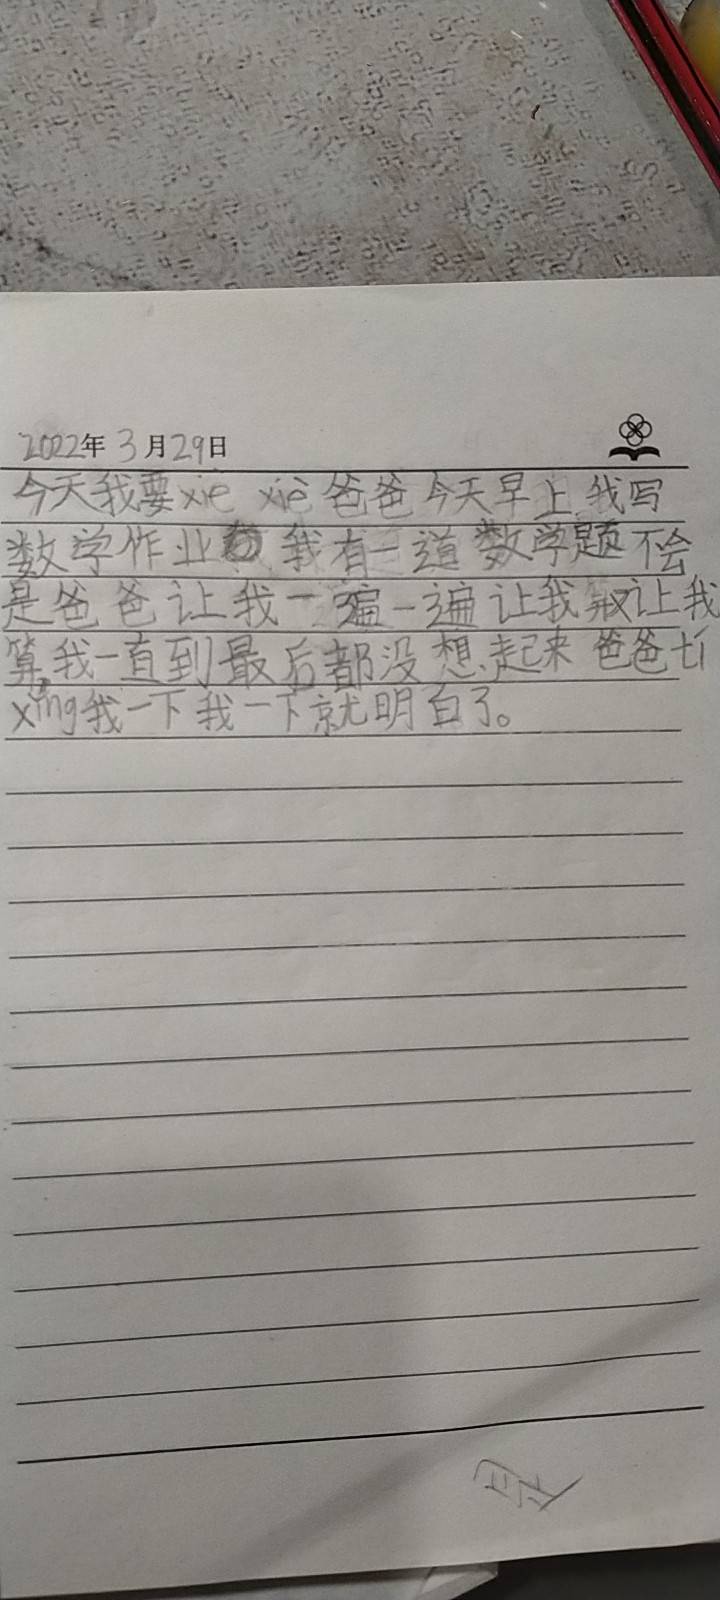 2022年3月29日
今天我要xiè xiè爸爸今天早上,我写
数学作业 我有一道数学题不会
是爸爸让我一遍一遍让我 让我
算,我一直到最后都没想起来 爸爸tí
xǐng我一下我一下就明白了。